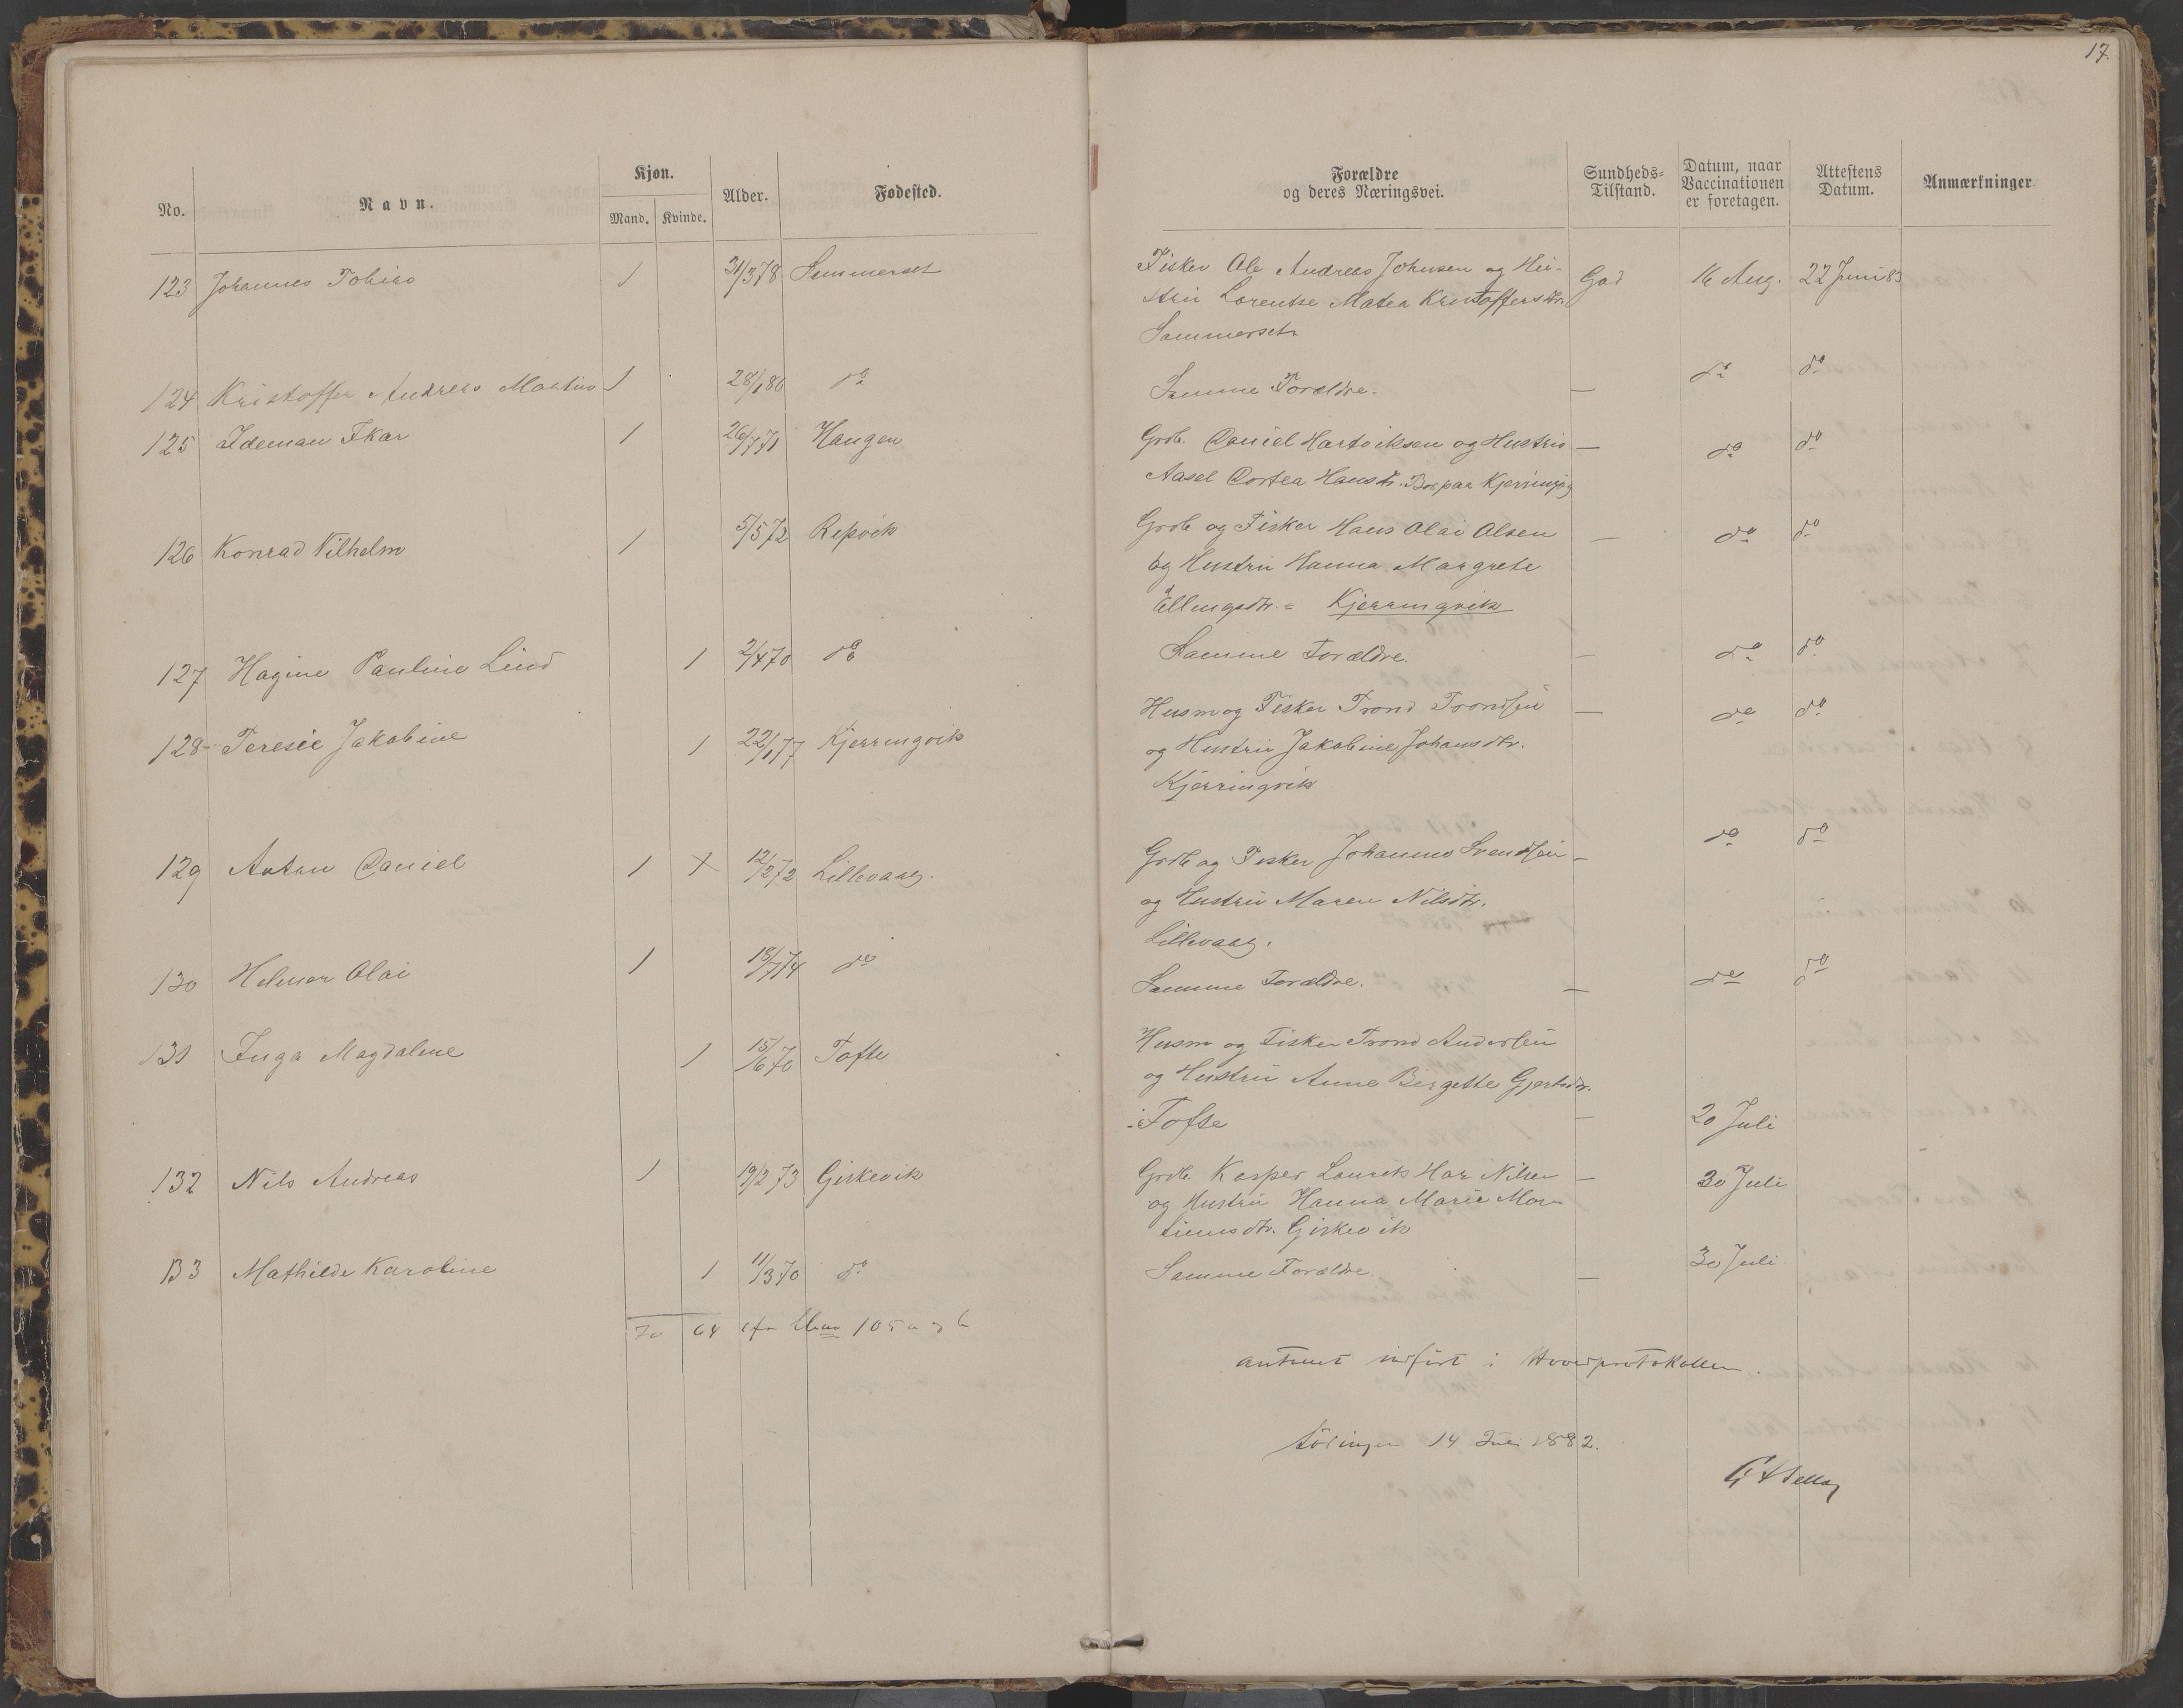 17.
No. Navn. Kjøn. Mand. Kvinde. Alder. Fødested. Forældre og deres Næringsvei. Sundheds-Tilstand. Datum, naar Vaccinationen er foretagen. Attestens Datum. Anmærkninger
123 Johannes Tobias 1 31/3 78 Sommerset Fisker Ole Andreas Johnsen og Hu-
stru Lorentse Matea Kristoffersdtr. God 16 Aug. 22 Juni 83
Sommerset
124 Kristoffer Andreas Martin 1 28/1 80 do Samme Forældre. — do do
125 Ideman Ikar 1 26/7 71 Haugen Grdb. Daniel Hartviksen og Hustru — do do
Aasel Dortea Hansdtr. Bor paa Kjerringøy
126 Konrad Vilhelm 1 5/5 72 Repvik Grdb og Fisker Hans Olai Olsen — do do
og Hustru Hanna Margrete
Ellingsdtr. = Kjerringvik
127 Hagine Pauline Lind 1 2/4 70 do Samme Forældre. — do do
128 Teresie Jakobine 1 22/1 77 Kjerringvik Husm og Fisker Trond Trondsen — do do
og Hustru Jakobine Johansdtr.
Kjerringvik
129 Anton Daniel 1 12/2 72 Lillevaag. Grdb og Fisker Johannes Svendsen — do do
og Hustru Maren Nilsdtr.
Lillevaag.
130 Helmer Olai 1 18/7 74 do Samme Forældre. — do do
131 Inga Magdalene 1 15/6 70 Tofte Husm og Fisker Trond Andersen
og Hustru Anne Birgitte Gjertsdtr.
i Tofte — 20 Juli
132 Nils Andreas 1 19/2 73 Girkevik Grdb. Kasper Laurits Har Nilsen — 30 Juli
og Hustru Hanna Marie Mor-
tinusdtr. Girkevik
133 Mathilde Karoline 1 11/3 70 do Samme Forældre. — 30 Juli
70 64 105 a og b
antaget indført i Hovedprotokollen.
14 Juli 1882.